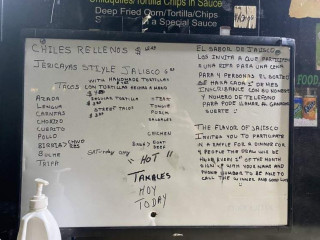 Chilaquiles/Tortilla Chips in Sauce:
Deep Fried Corn/Tortilla/Chips
a Special Sauce
CHILES RELLENOS $
JERICAYAS STYLE JALISCO
WITH HANDMADE TORTILLAS
TACOS CON TORTILLAS HECHAS A MANO
ASADA
LENGUA
CARNITAS
CHORIZO
CUERITO
POLLO
BIRRIA
BUCHE
TRIPA
REGULAR TORTILLA
STREET TACOS
STEAK
TONGUE
PORK
SAUSAGES
CHICKEN
GOAT
BEEF
Saturday only
"HOT"
TAMALES
HOY
TODAY
EL SABOR DE JALISCO
LOS INVITA A QUE PARTICIPEN
A UNA RIFA PARA UNA CENA
PARA 4 PERSONAS EL SORTEO
SE HARA CADA 1° DE MES
INSCRIBANSE CON SU NOMBRE
Y NUMERO DE TELEFONO
PARA PODE LLAMAR AL GANADOR
SUERTE
THE FLAVOR OF JALISCO
INVITES YOU TO PARTICIPATE
IN A RAFFLE FOR A DINNER FOR
4 PEOPLE THE DRAW WILL BE
EVERY 1ST OF THE MONTH
SIGN UP WITH YOUR NAME AND
PHONE NUMBER TO BE ABLE TO
CALL THE WINNER AND GOOD LUCK
FOOD